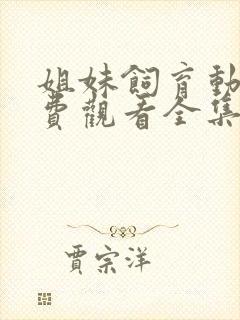 姐妹飼育動
費觀看全集
賈宗洋